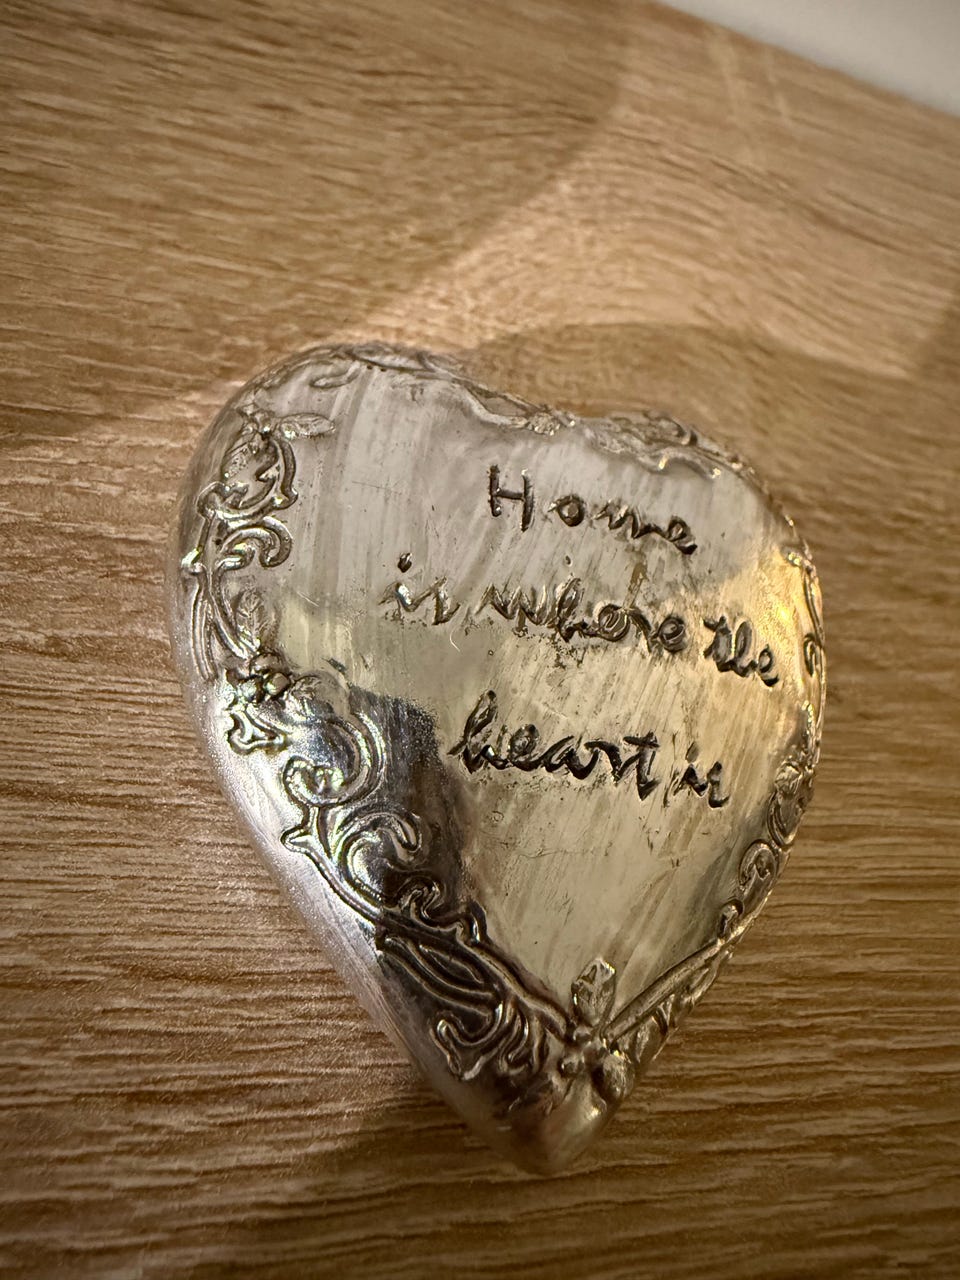 Home
is where the
heart is